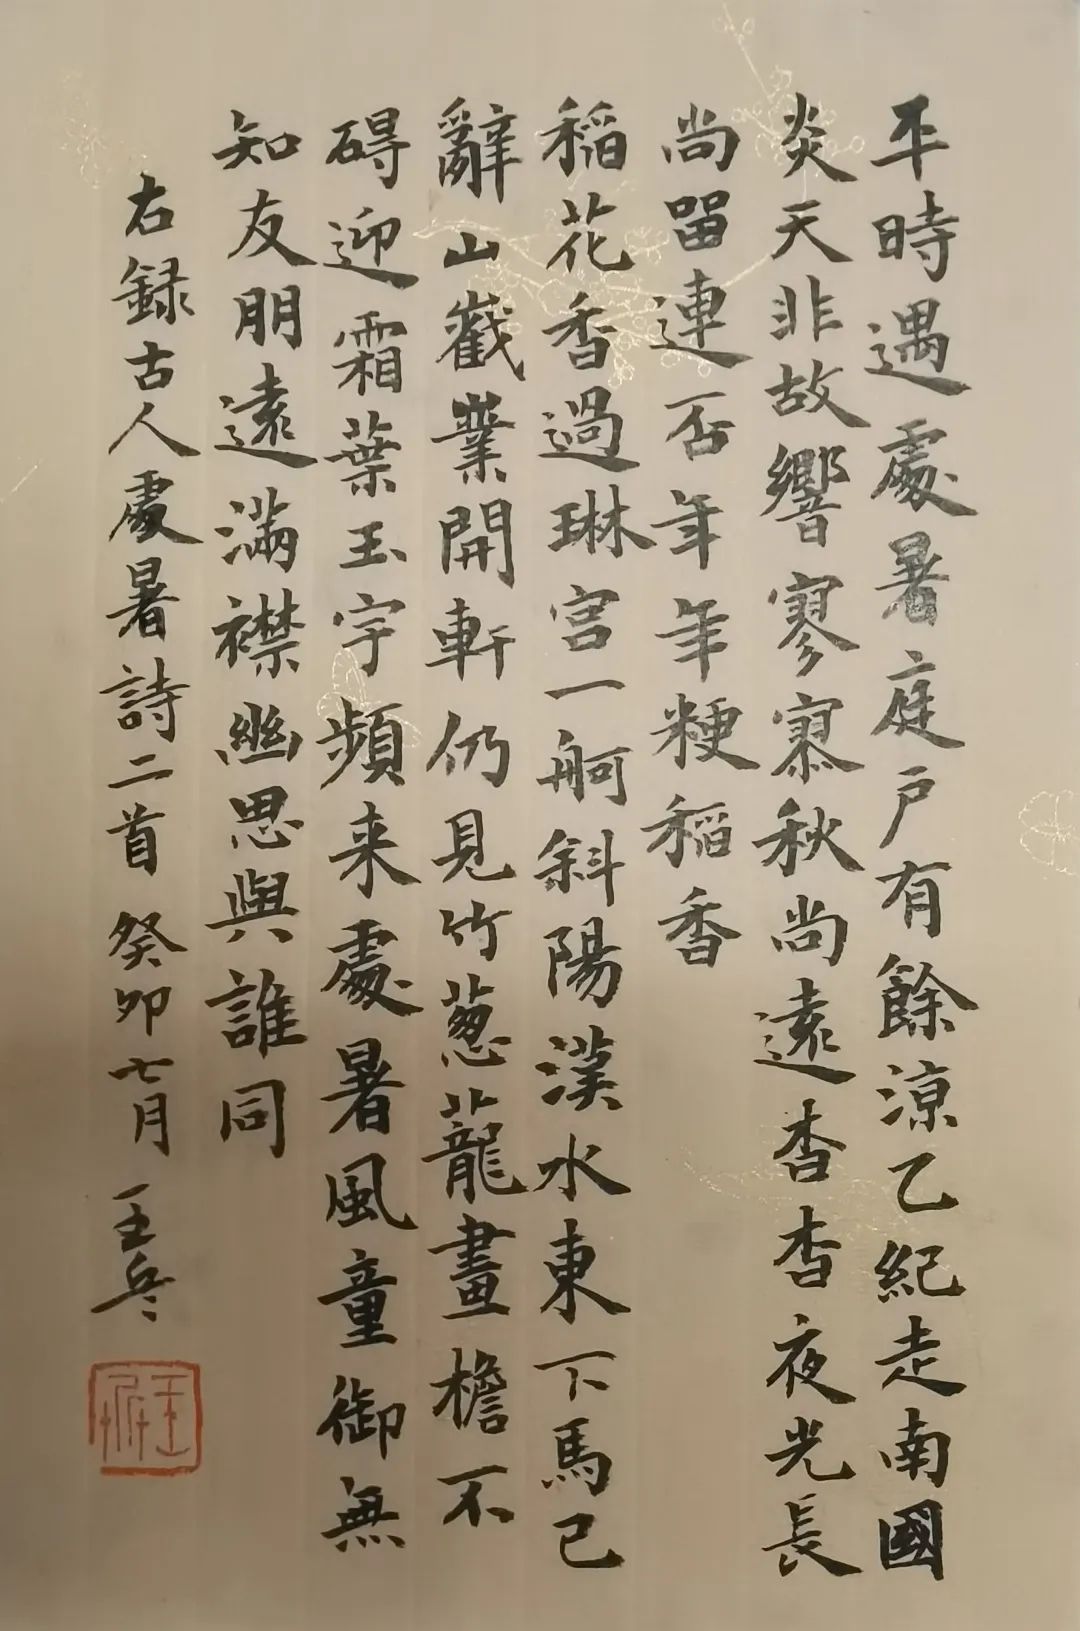 平時遇處暑庭戶有餘涼乙紀走南國
炎天非故響寥寥秋尚遠杳杳夜光長
尚留連否年年粳稻香
稻花香過琳宫一舸斜陽漢水東下馬已
辭山巀業開軒仍見竹葱蘢畫檐不
碍迎霜葉玉宇頻来處暑風童御無
知友朋遠滿襟幽思與誰同
右録古人處暑詩二首 癸卯七月 王兵